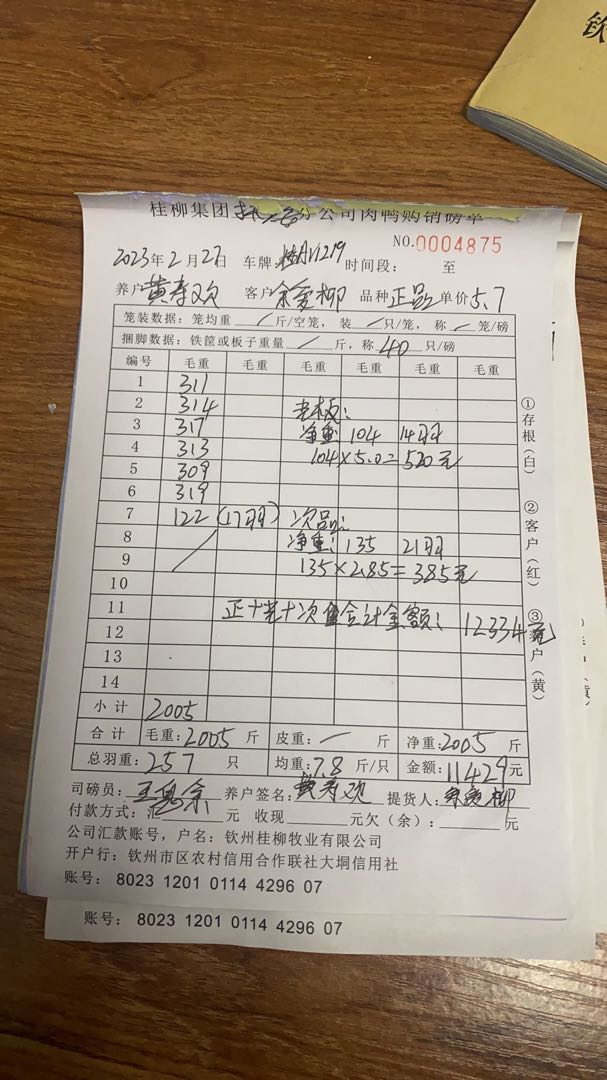 钦
桂柳集团 分公司肉鸭购销磅单
NO.0004875
2023年2月27日 车牌: 桂AV1219 时间段: 至
养户 黄寿欢 客户 余爱柳 品种 正品 单价 5.7
笼装数据: 笼均重 / 斤/空笼, 装 / 只/笼, 称 / 笼/磅
捆脚数据: 铁筐或板子重量 / 斤, 称 40 只/磅
编号 毛重 毛重 毛重 毛重 毛重 毛重
1 311
2 314 老板:
3 317 净重: 104 14羽
4 313 104×5.0=520元
5 309
6 319
7 122 (17羽) 次品:
8 净重: 135 21羽
9 135×2.85=385元
10
11 正+老+次 合计金额: 12334元
12
13
14
小计 2005
合计 毛重:2005斤 皮重: / 斤 净重:2005斤
总羽重:257 只 均重:7.8斤/只 金额:11429元
司磅员: 养户签名: 黄寿欢 提货人: 余爱柳
付款方式: 元 收现 元欠(余): 元
公司汇款账号, 户名: 钦州桂柳牧业有限公司
开户行: 钦州市区农村信用合作联社大垌信用社
账号: 8023 1201 0114 4296 07
账号: 8023 1201 0114 4296 07
①存根(白)
②客户(红)
③养户(黄)